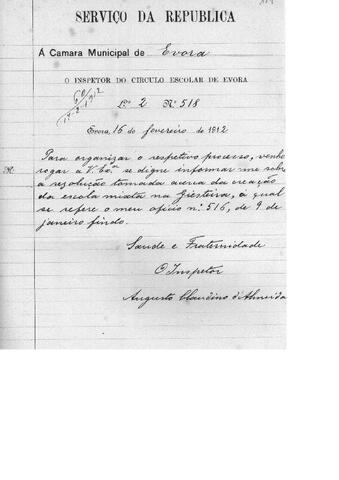 SERVIÇO DA REPUBLICA
Á Camara Municipal de Evora
O INSPETOR DO CIRCULO ESCOLAR DE EVORA
Lº 2 Nº 518
Evora, 16 de fevereiro de 1912
Para organizar o respetivo processo, venho
rogar a V. Exª se digne informar me sobre
a resolução tomada acerca da creação
da escola mixta na Giesteira, á qual
se refere o meu oficio nº 516, de 9 de
janeiro findo.
Saude e Fraternidade
O Inspetor
Augusto Claudino d'Almeida